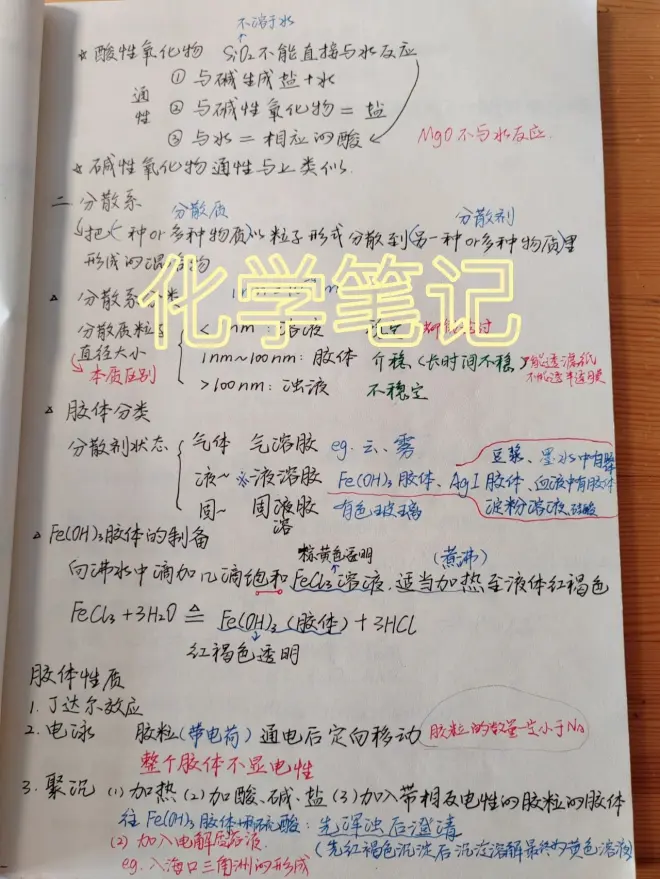 不溶于水
☆ 酸性氧化物 SiO₂不能直接与水反应
通性
① 与碱生成盐+水
② 与碱性氧化物=盐
③ 与水=相应的酸
MgO不与水反应.
☆ 碱性氧化物通性与上类似.
二 分散系
分散质 分散剂
把(一种or多种物质)以粒子形式分散到(另一种or多种物质)里
形成的混合物
化学笔记
△ 分散系分类
分散质粒子直径大小
本质区别
nm:溶液
1nm~100nm:胶体 介稳(长时间不稳)
能透滤纸
不能透半透膜
>100nm:浊液 不稳定
△ 胶体分类
分散剂状态
气体 气溶胶 eg.云、雾
液~ ※液溶胶 Fe(OH)₃胶体、AgI胶体、血液中有胶体
豆浆、墨水中有胶体
固~ 固液胶 有色玻璃
溶
淀粉溶液、硅酸
△ Fe(OH)₃胶体的制备
棕黄色透明 (煮沸)
向沸水中滴加几滴饱和FeCl₃溶液,适当加热至液体红褐色
FeCl₃+3H₂O ≜ Fe(OH)₃(胶体)+3HCl
红褐色透明
胶体性质
1.丁达尔效应
2.电泳 胶粒(带电荷)通电后定向移动
胶粒的数量一定小于Na
整个胶体不显电性
3.聚沉 (1)加热(2)加酸、碱、盐(3)加入带相反电性的胶粒的胶体
往Fe(OH)₃胶体中加硫酸:先浑浊后澄清
(2)加入电解质溶液.
(先红褐色沉淀后沉淀溶解最终为黄色溶液)
eg.入海口三角洲的形成